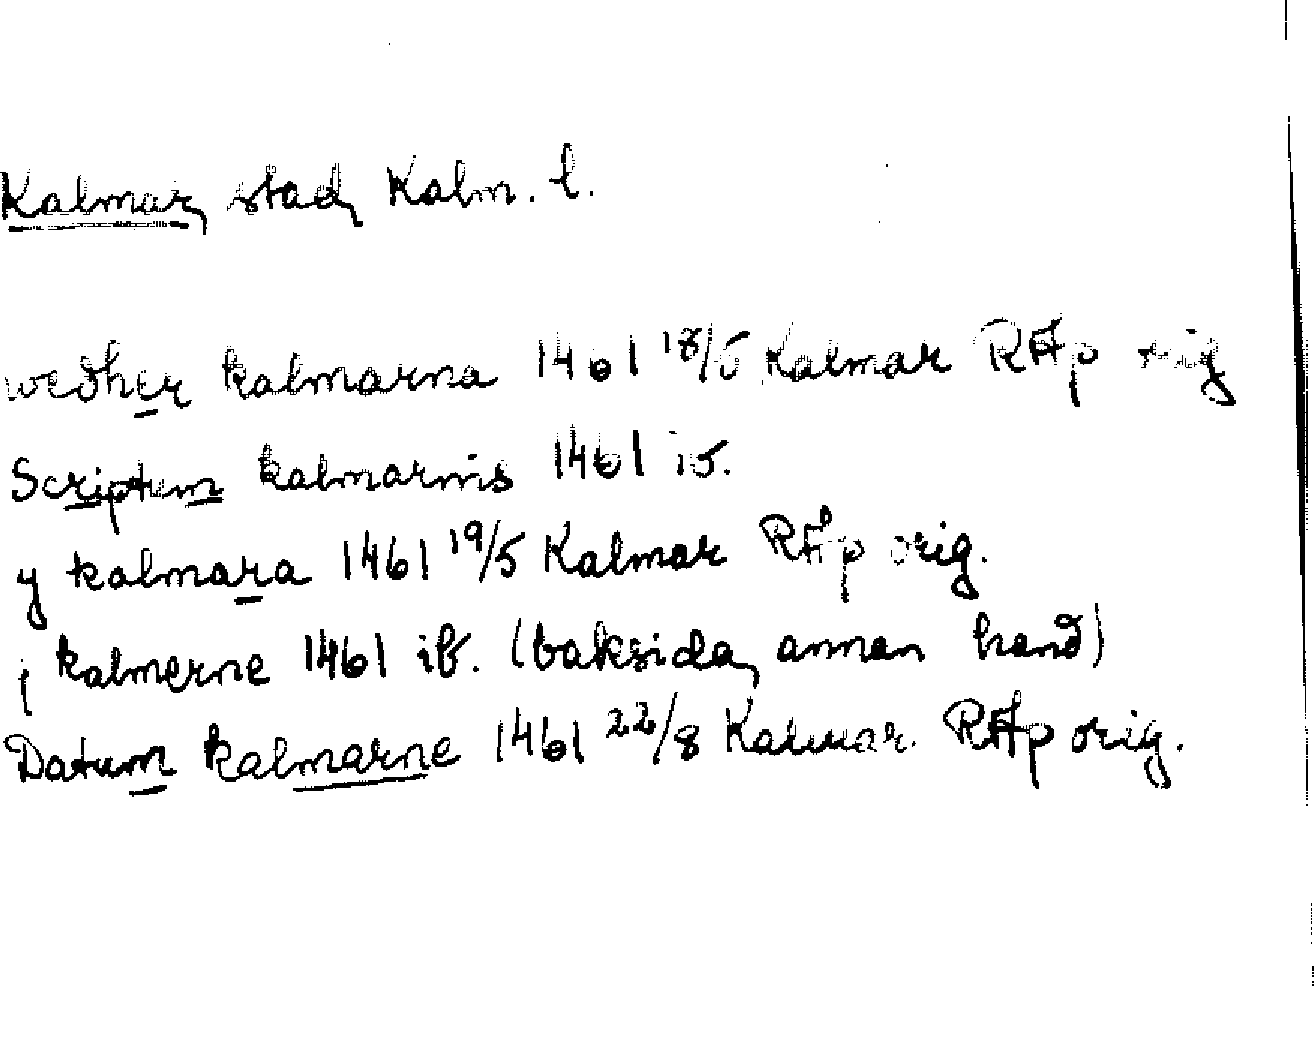 Kalmar, stad, Kalm. l.
wedher kalmarna 1461 18/5 Kalmar RAp orig
Scriptum kalmarnis 1461 ib.
y kalmara 1461 19/5 Kalmar RAp orig.
j kalmerne 1461 ib. (baksida, annan hand)
Datum kalmarne 1461 22/8 Kalmar. RAp orig.